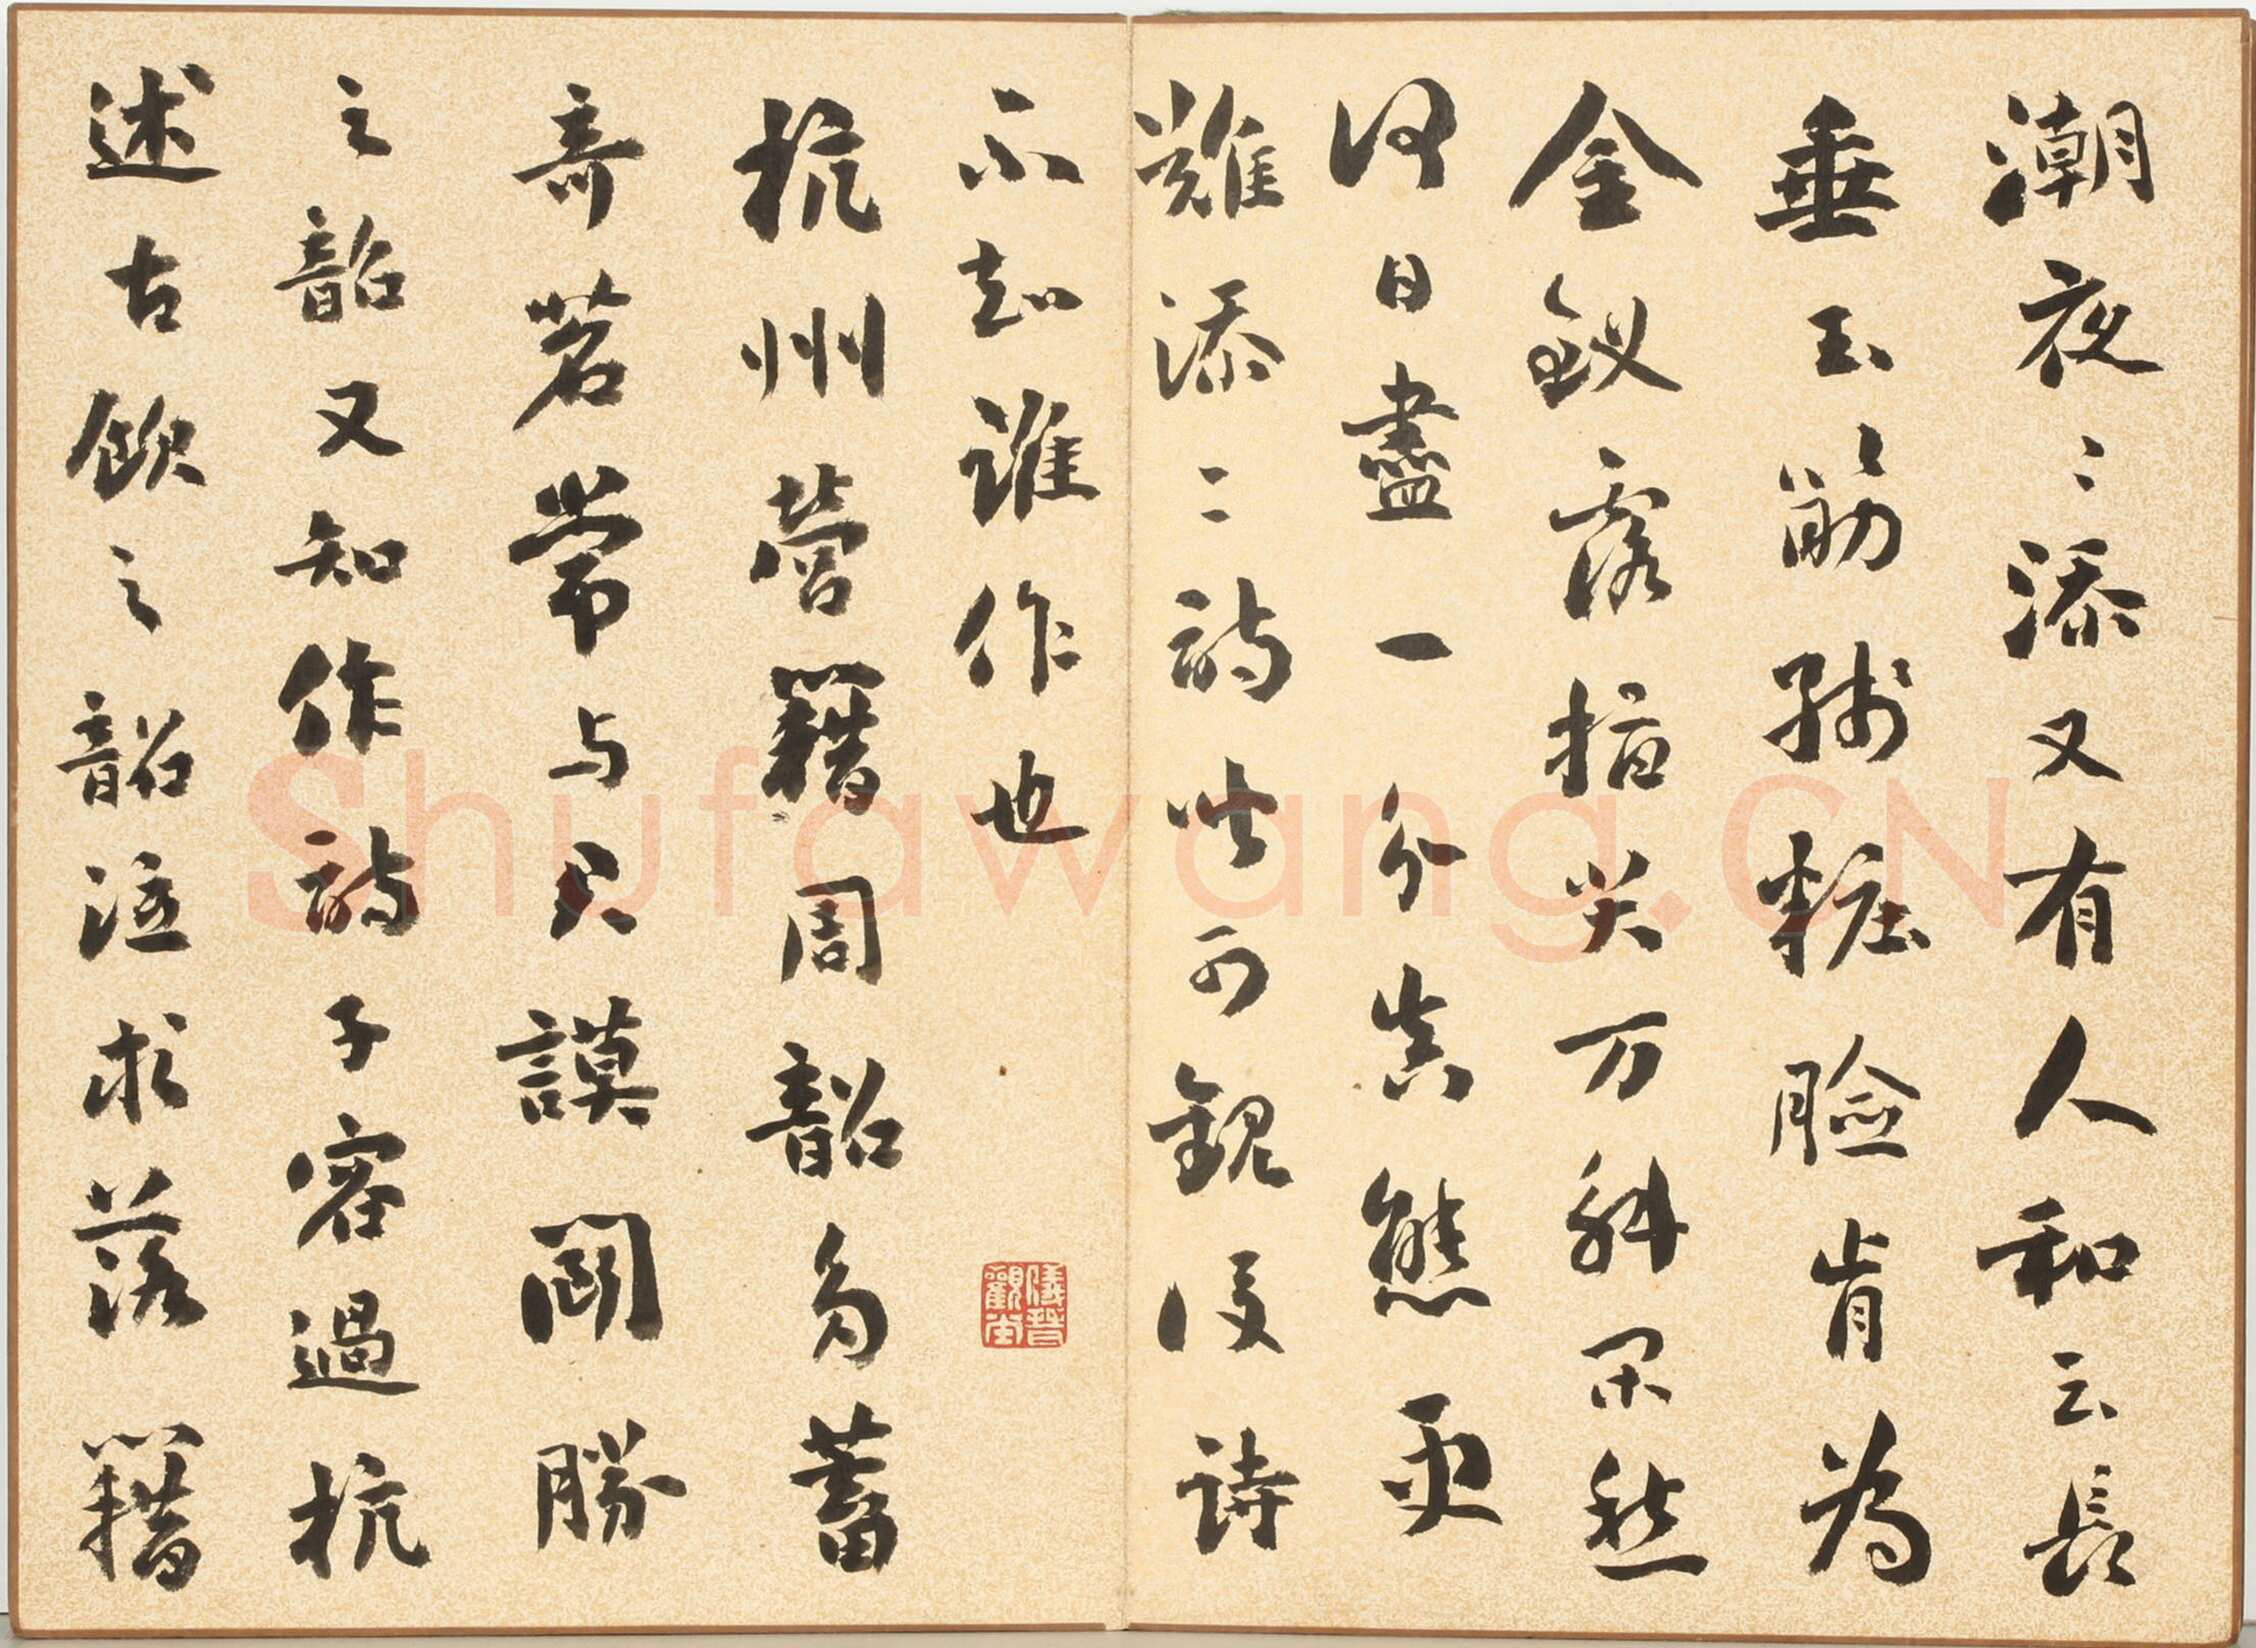 潮夜〻添又有人和云長
垂玉筋殘粧臉肯為
金釵露指尖万斛閑愁
何日盡一分真態更
難添二詩皆可觀後詩
不知誰作也
儀晉觀堂
杭州營籍周韶多蓄
奇茗常与君謨鬭勝
之韶又知作詩子容過杭
述古飲之韶泣求落籍
Shufawang.CN